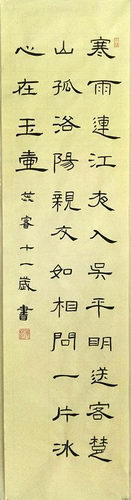 寒雨連江夜入吳平明送客楚
山孤洛陽親友如相問一片冰
心在玉壺
苡睿十一歲書